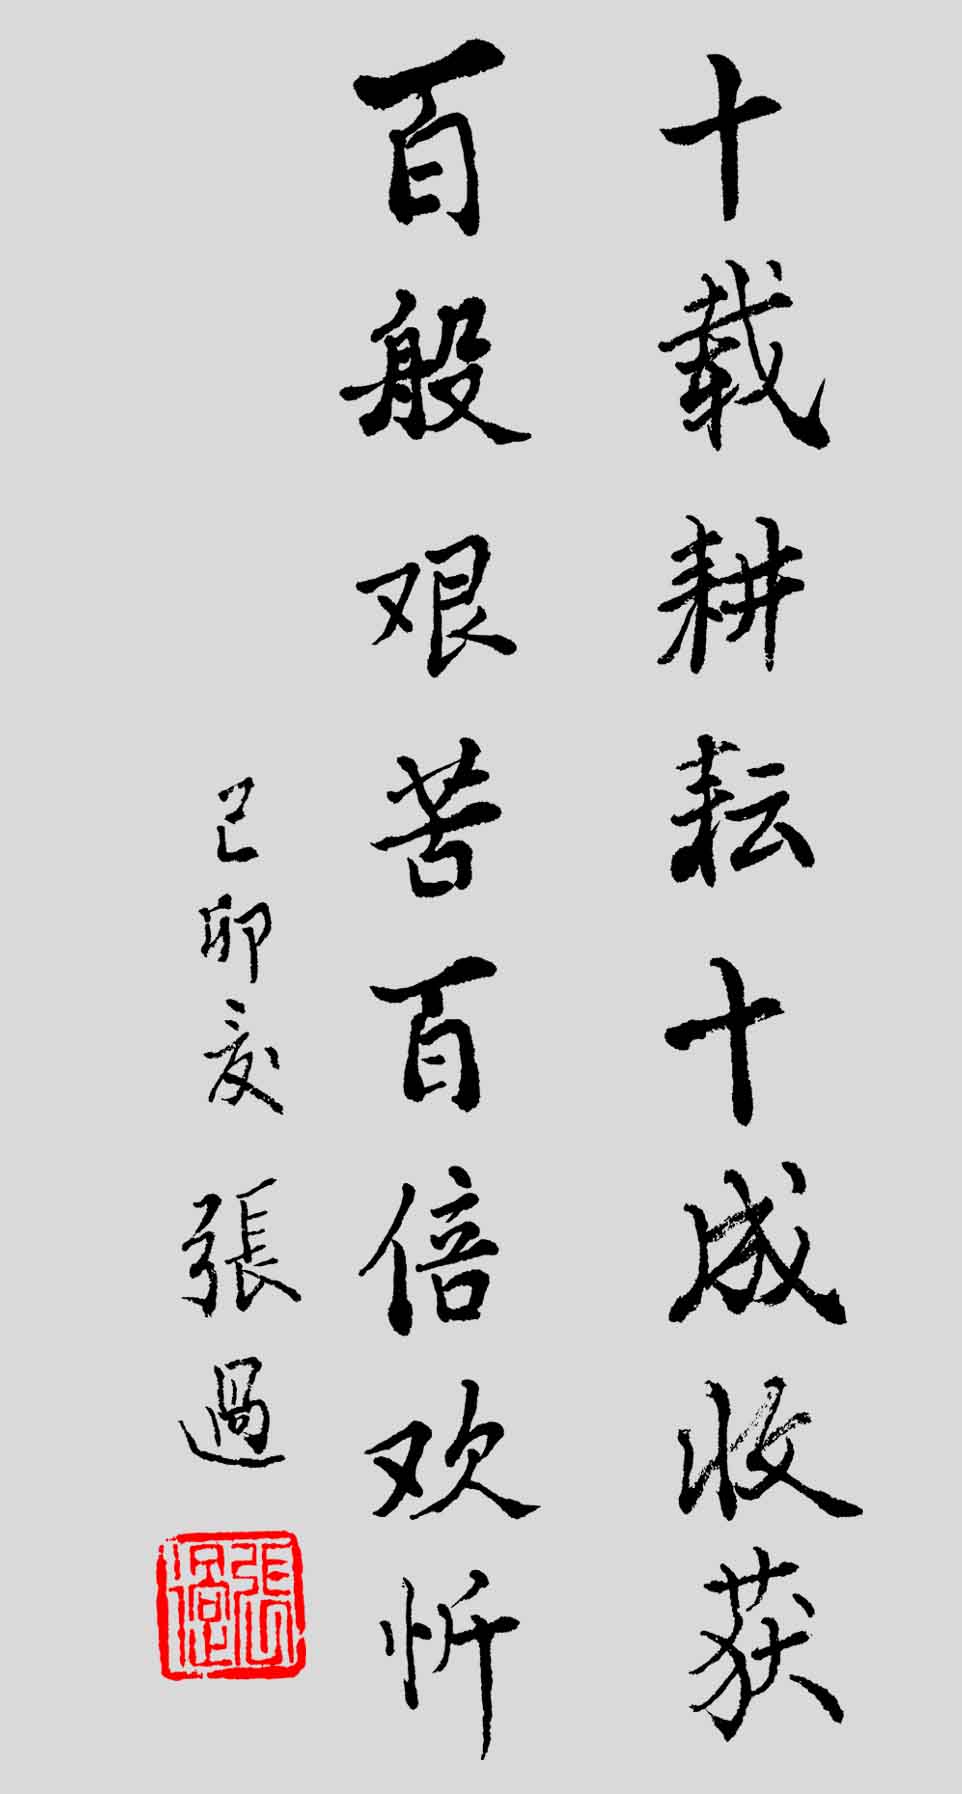 十载耕耘十成收获
百般艰苦百倍欢忻
己卯夏 張過
張過